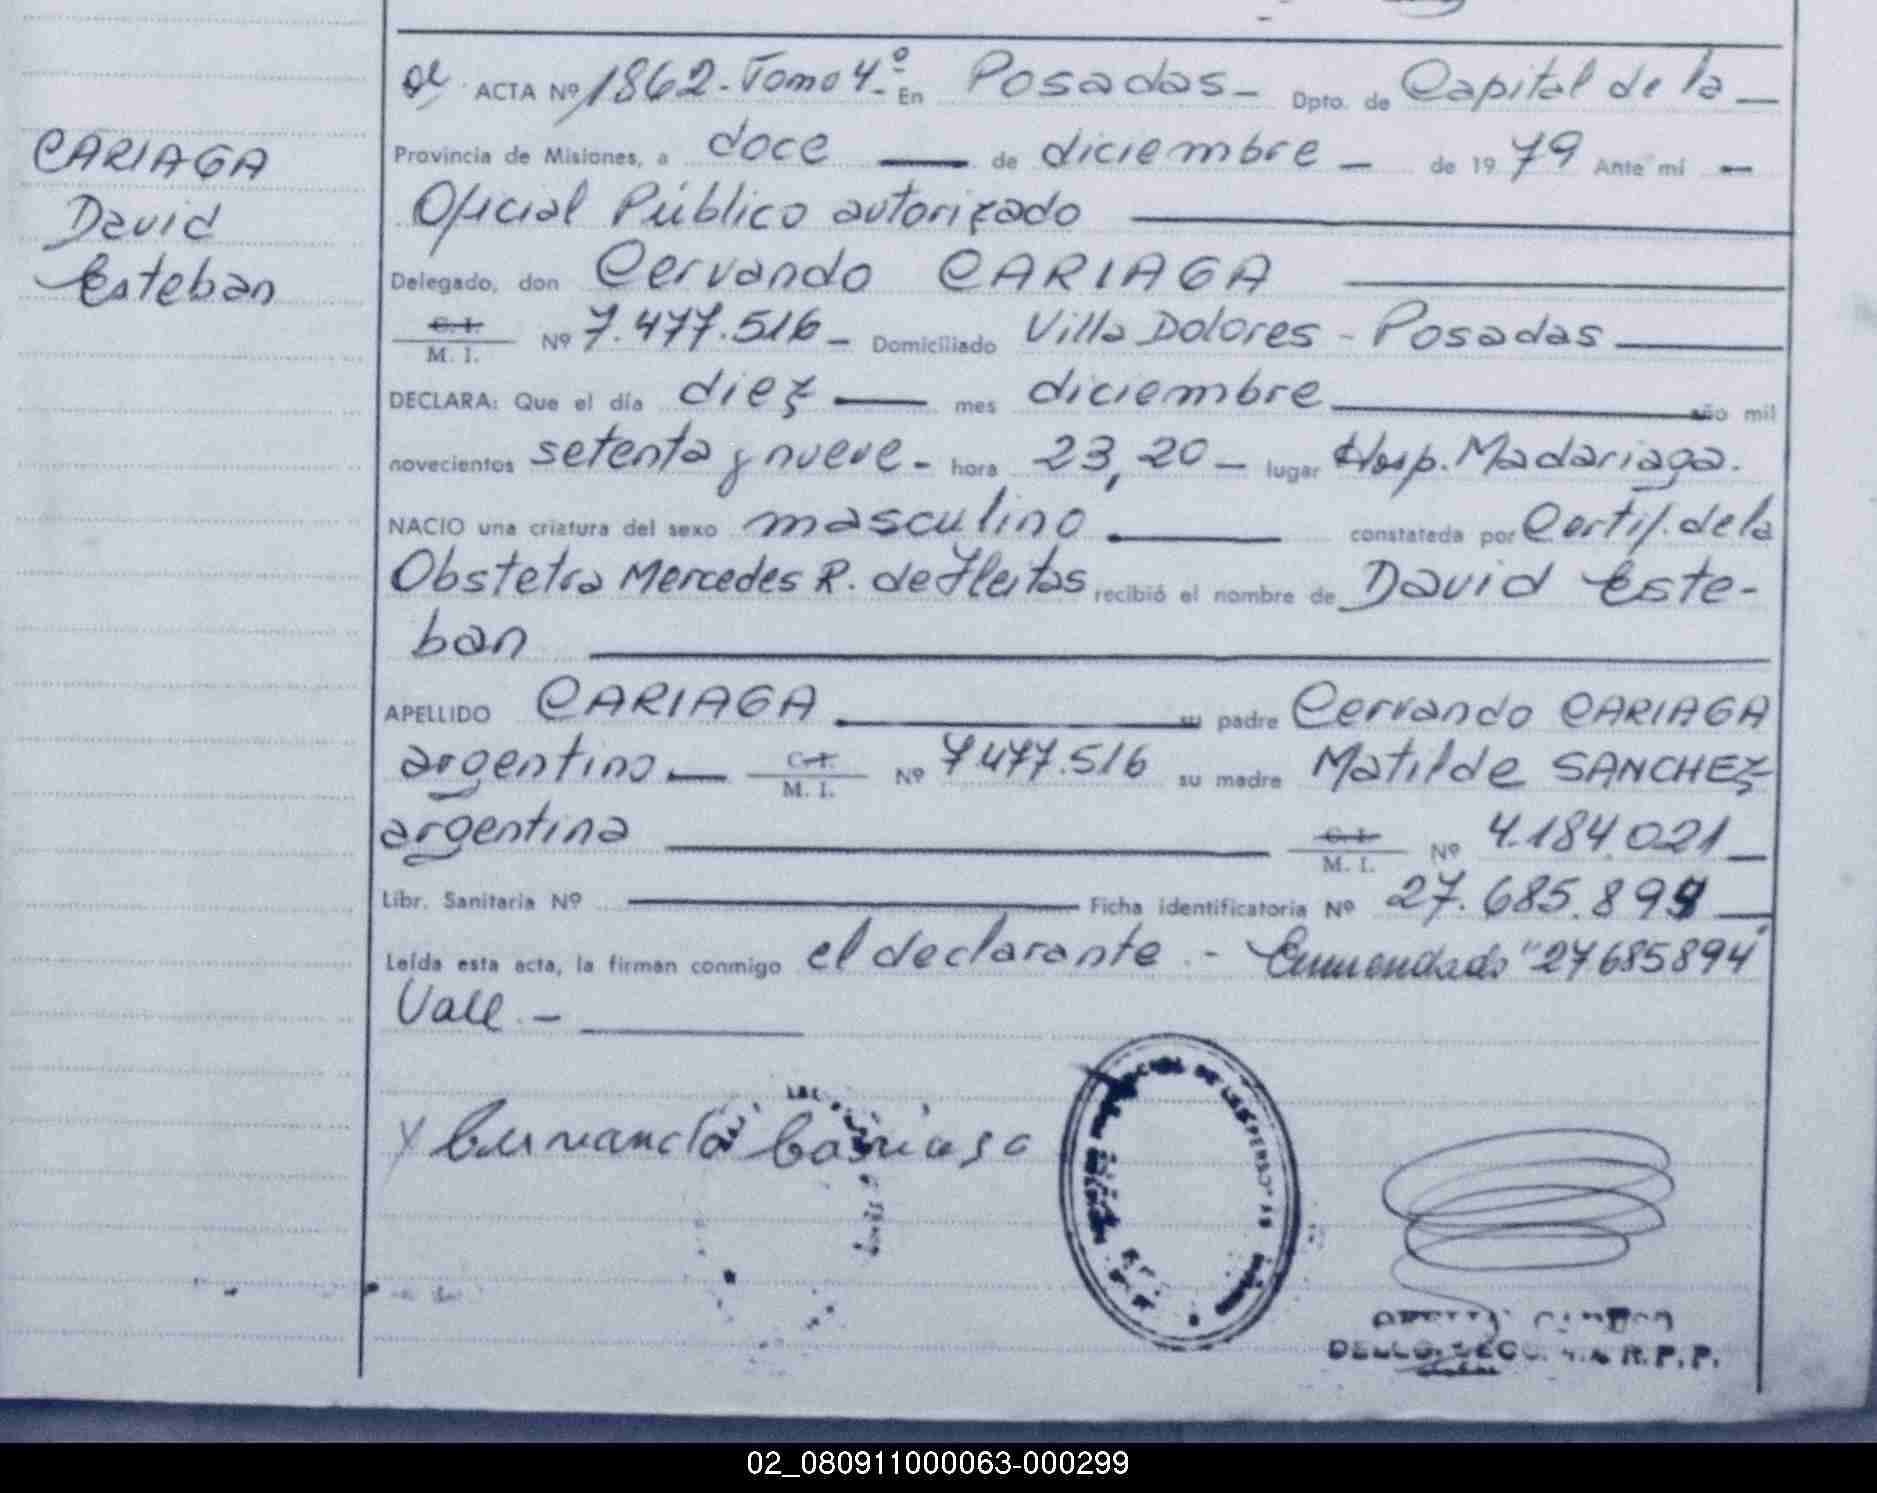 CARIAGA
David
Esteban
ACTA Nº 1862 - Tomo 4º - En Posadas - Dpto. de Capital de la -
Provincia de Misiones, a doce de diciembre - de 1979 Ante mí -
Oficial Público autorizado
Delegado, don Cervando CARIAGA
C. I. / M. I. Nº 7.477.516 - Domiciliado Villa Dolores - Posadas
DECLARA: Que el día diez mes diciembre año mil
novecientos setenta y nueve - hora 23,20 - lugar Hosp. Madariaga.
NACIO una criatura del sexo masculino constatada por Certif. de la
Obstetra Mercedes R. de Fleitas recibió el nombre de David Este-
ban
APELLIDO CARIAGA su padre Cervando CARIAGA
argentino - C. I. / M. I. Nº 7477.516 su madre Matilde SANCHEZ
argentina C. I. / M. I. Nº 4.184.021 -
Libr. Sanitaria Nº Ficha identificatoria Nº 27.685.894
Leída esta acta, la firman conmigo el declarante - Enmendado "27685894"
Vale. -
x Cervando Cariaga
R.P.P.
02_080911000063-000299